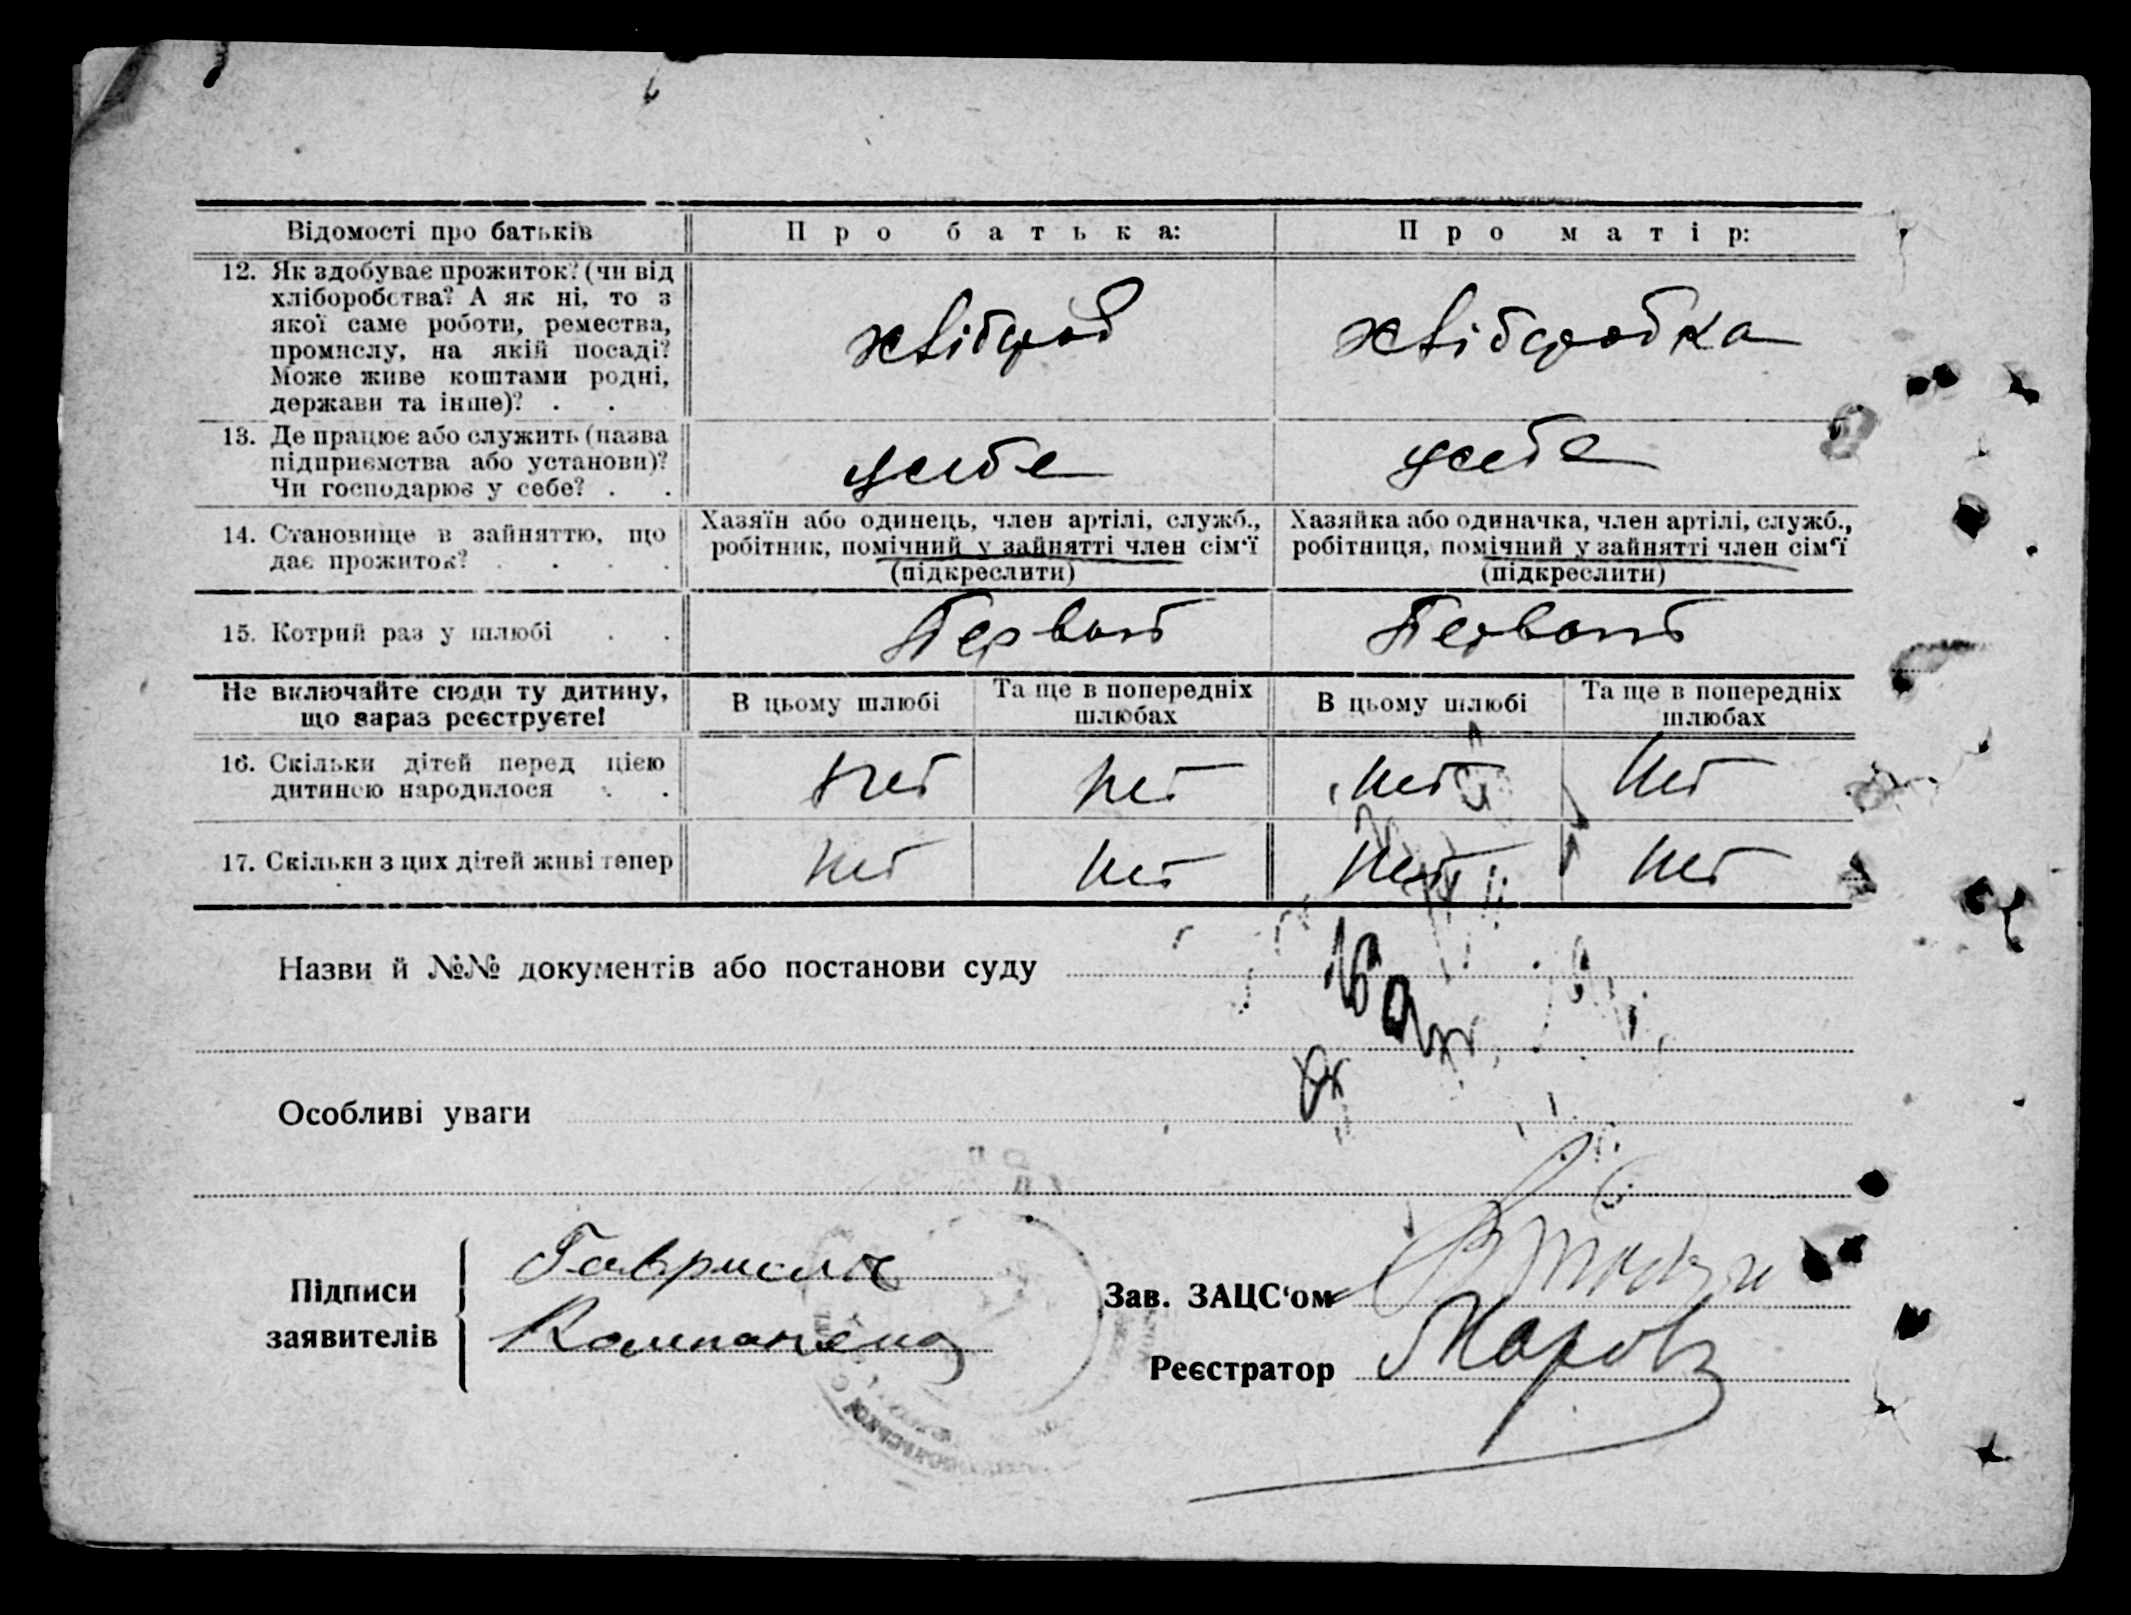 Відомості про батьків
Про батька:
Про матір:
12. Як здобуває прожиток? (чи від
хліборобства? А як ні, то з
якої саме роботи, ремества,
промислу, на якій посаді?
Може живе коштами родні,
держави та інше)? . .
хлібороб
хліборобка
13. Де працює або служить (назва
підприємства або установи)?
Чи господарює у себе? . .
у себе
у себе
14. Становище в зайняттю, що
дає прожиток? . . . .
Хазяїн або одинець, член артілі, служб.,
робітник, помічний у зайнятті член сім'ї
(підкреслити)
Хазяйка або одиначка, член артілі, служб.,
робітниця, помічний у зайнятті член сім'ї
(підкреслити)
15. Котрий раз у шлюбі . .
Первый
Первый
Не включайте сюди ту дитину,
що зараз реєструєте!
В цьому шлюбі
Та ще в попередніх
шлюбах
В цьому шлюбі
Та ще в попередніх
шлюбах
16. Скільки дітей перед цією
дитиною народилося . .
нет
нет
нет
нет
17. Скільки з цих дітей живі тепер
нет
нет
нет
нет
Назви й №№ документів або постанови суду
Особливі уваги
Підписи
заявителів
Зав. ЗАЦС'ом
Реєстратор